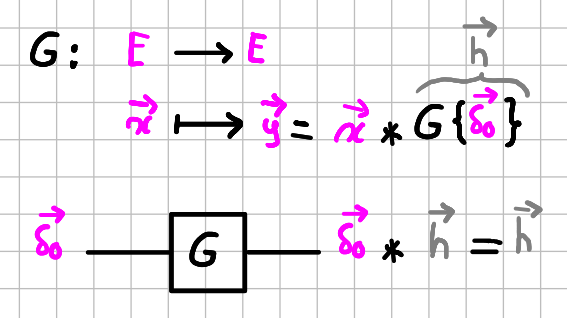 h⃗
G: E ⟶ E
x⃗ ⟼ y⃗ = x⃗ * G{δ⃗₀}
δ⃗₀ G δ⃗₀ * h⃗ = h⃗